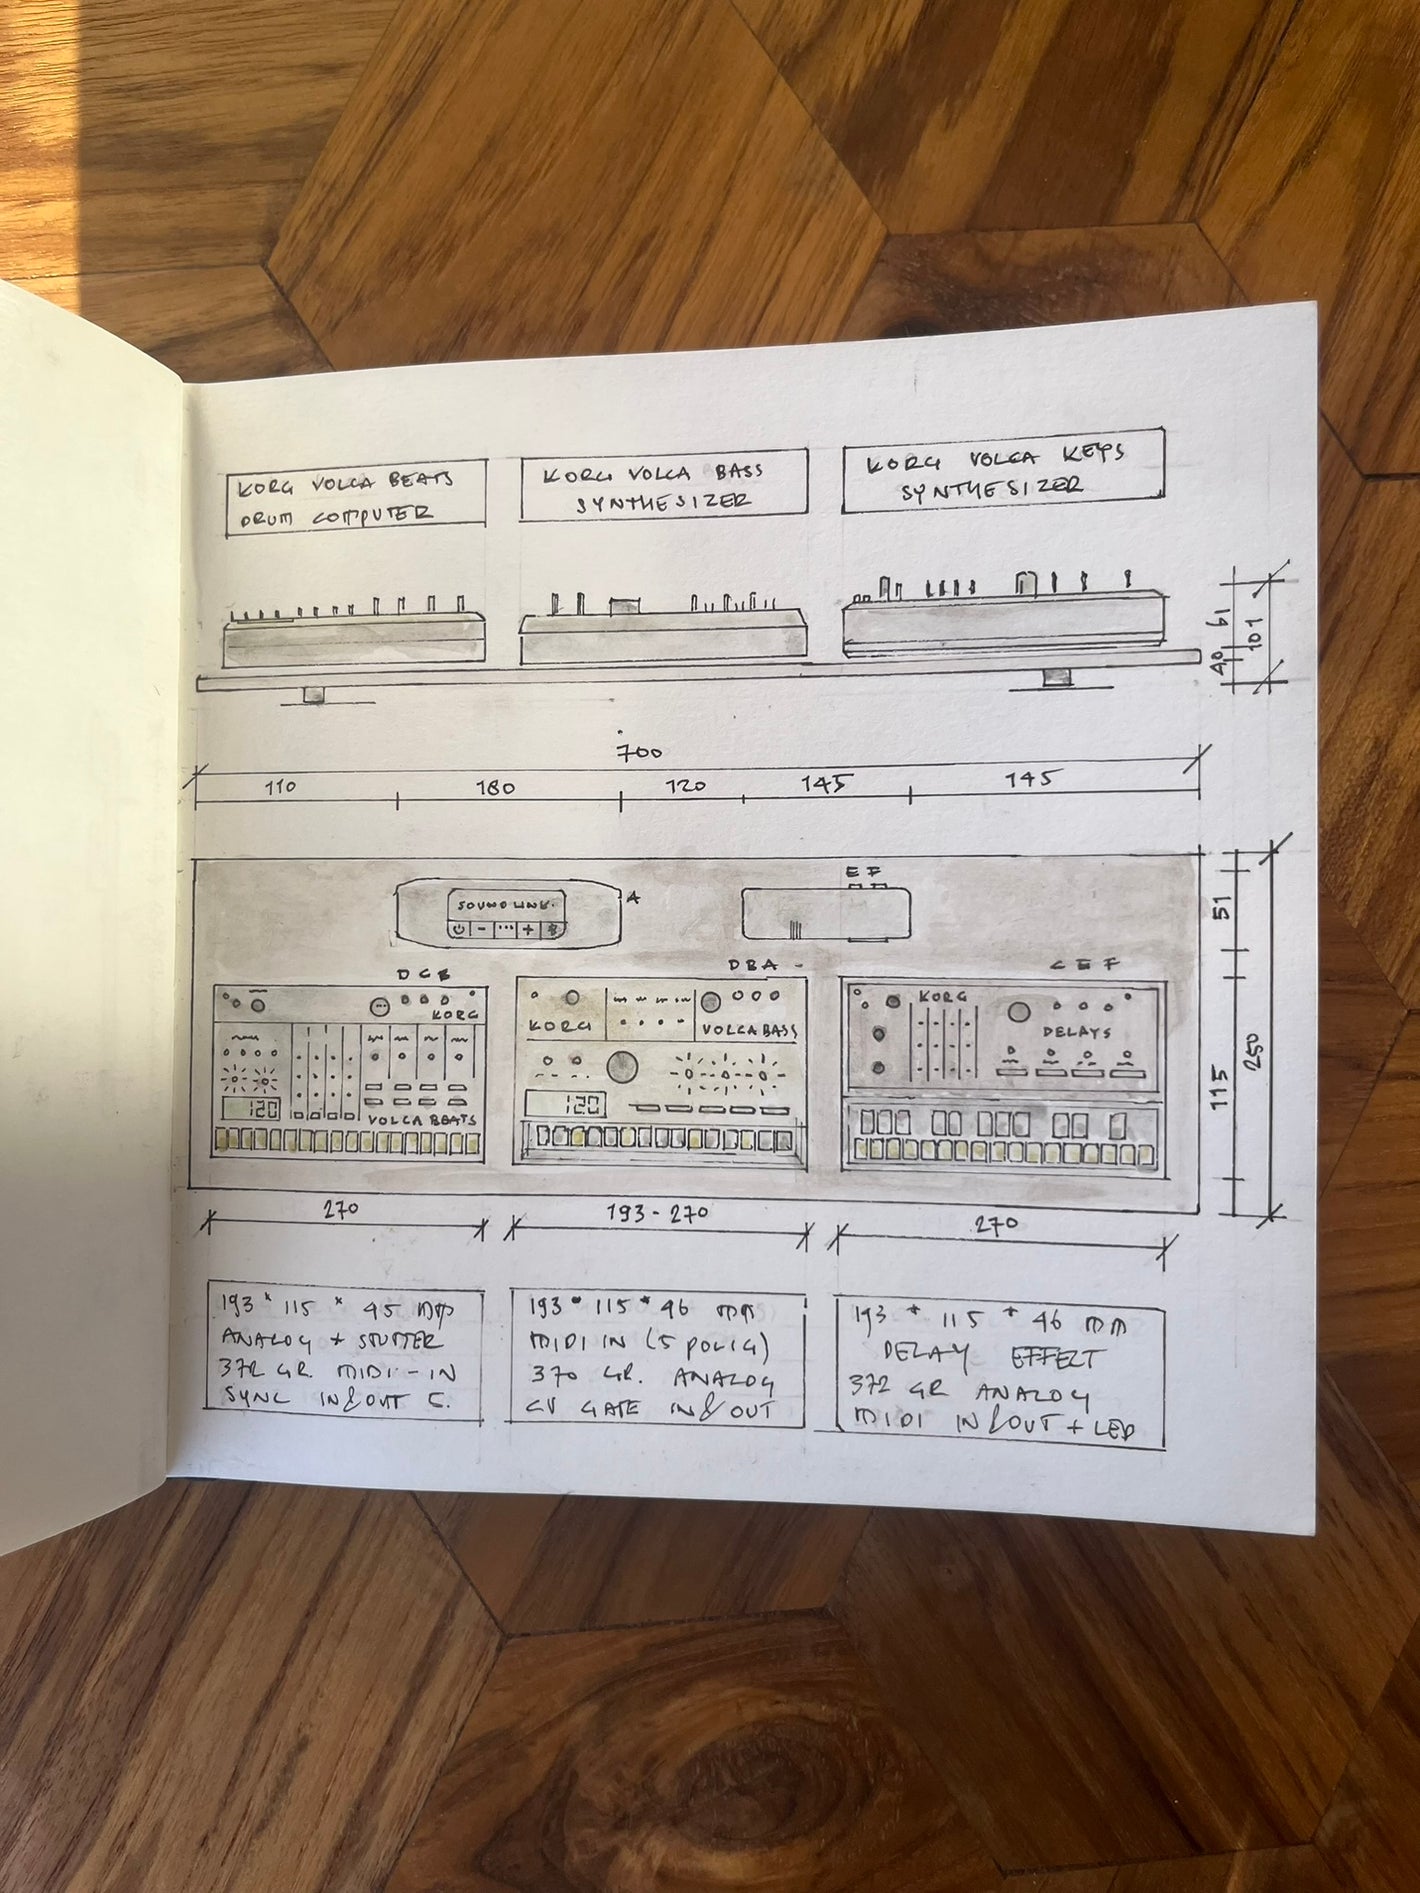 KORG VOLCA BEATS
DRUM COMPUTER
KORG VOLCA BASS
SYNTHESIZER
KORG VOLCA KEYS
SYNTHESIZER
61
40
101
700
110 180 120 145 145
SOUND LINK.
- ... +
A
E F
51
D C B
D B A -
C E F
KORG
120
VOLCA BEATS
KORG
VOLCA BASS
120
KORG
DELAYS
115
250
270
193 - 270
270
193 * 115 * 45 MM
ANALOG + STUTTER
372 GR. MIDI - IN
SYNC IN & OUT C.
193 * 115 * 46 MM
MIDI IN (5 POLIG)
370 GR. ANALOG
CV GATE IN & OUT
193 * 115 * 46 MM
DELAY EFFECT
372 GR ANALOG
MIDI IN & OUT + LED